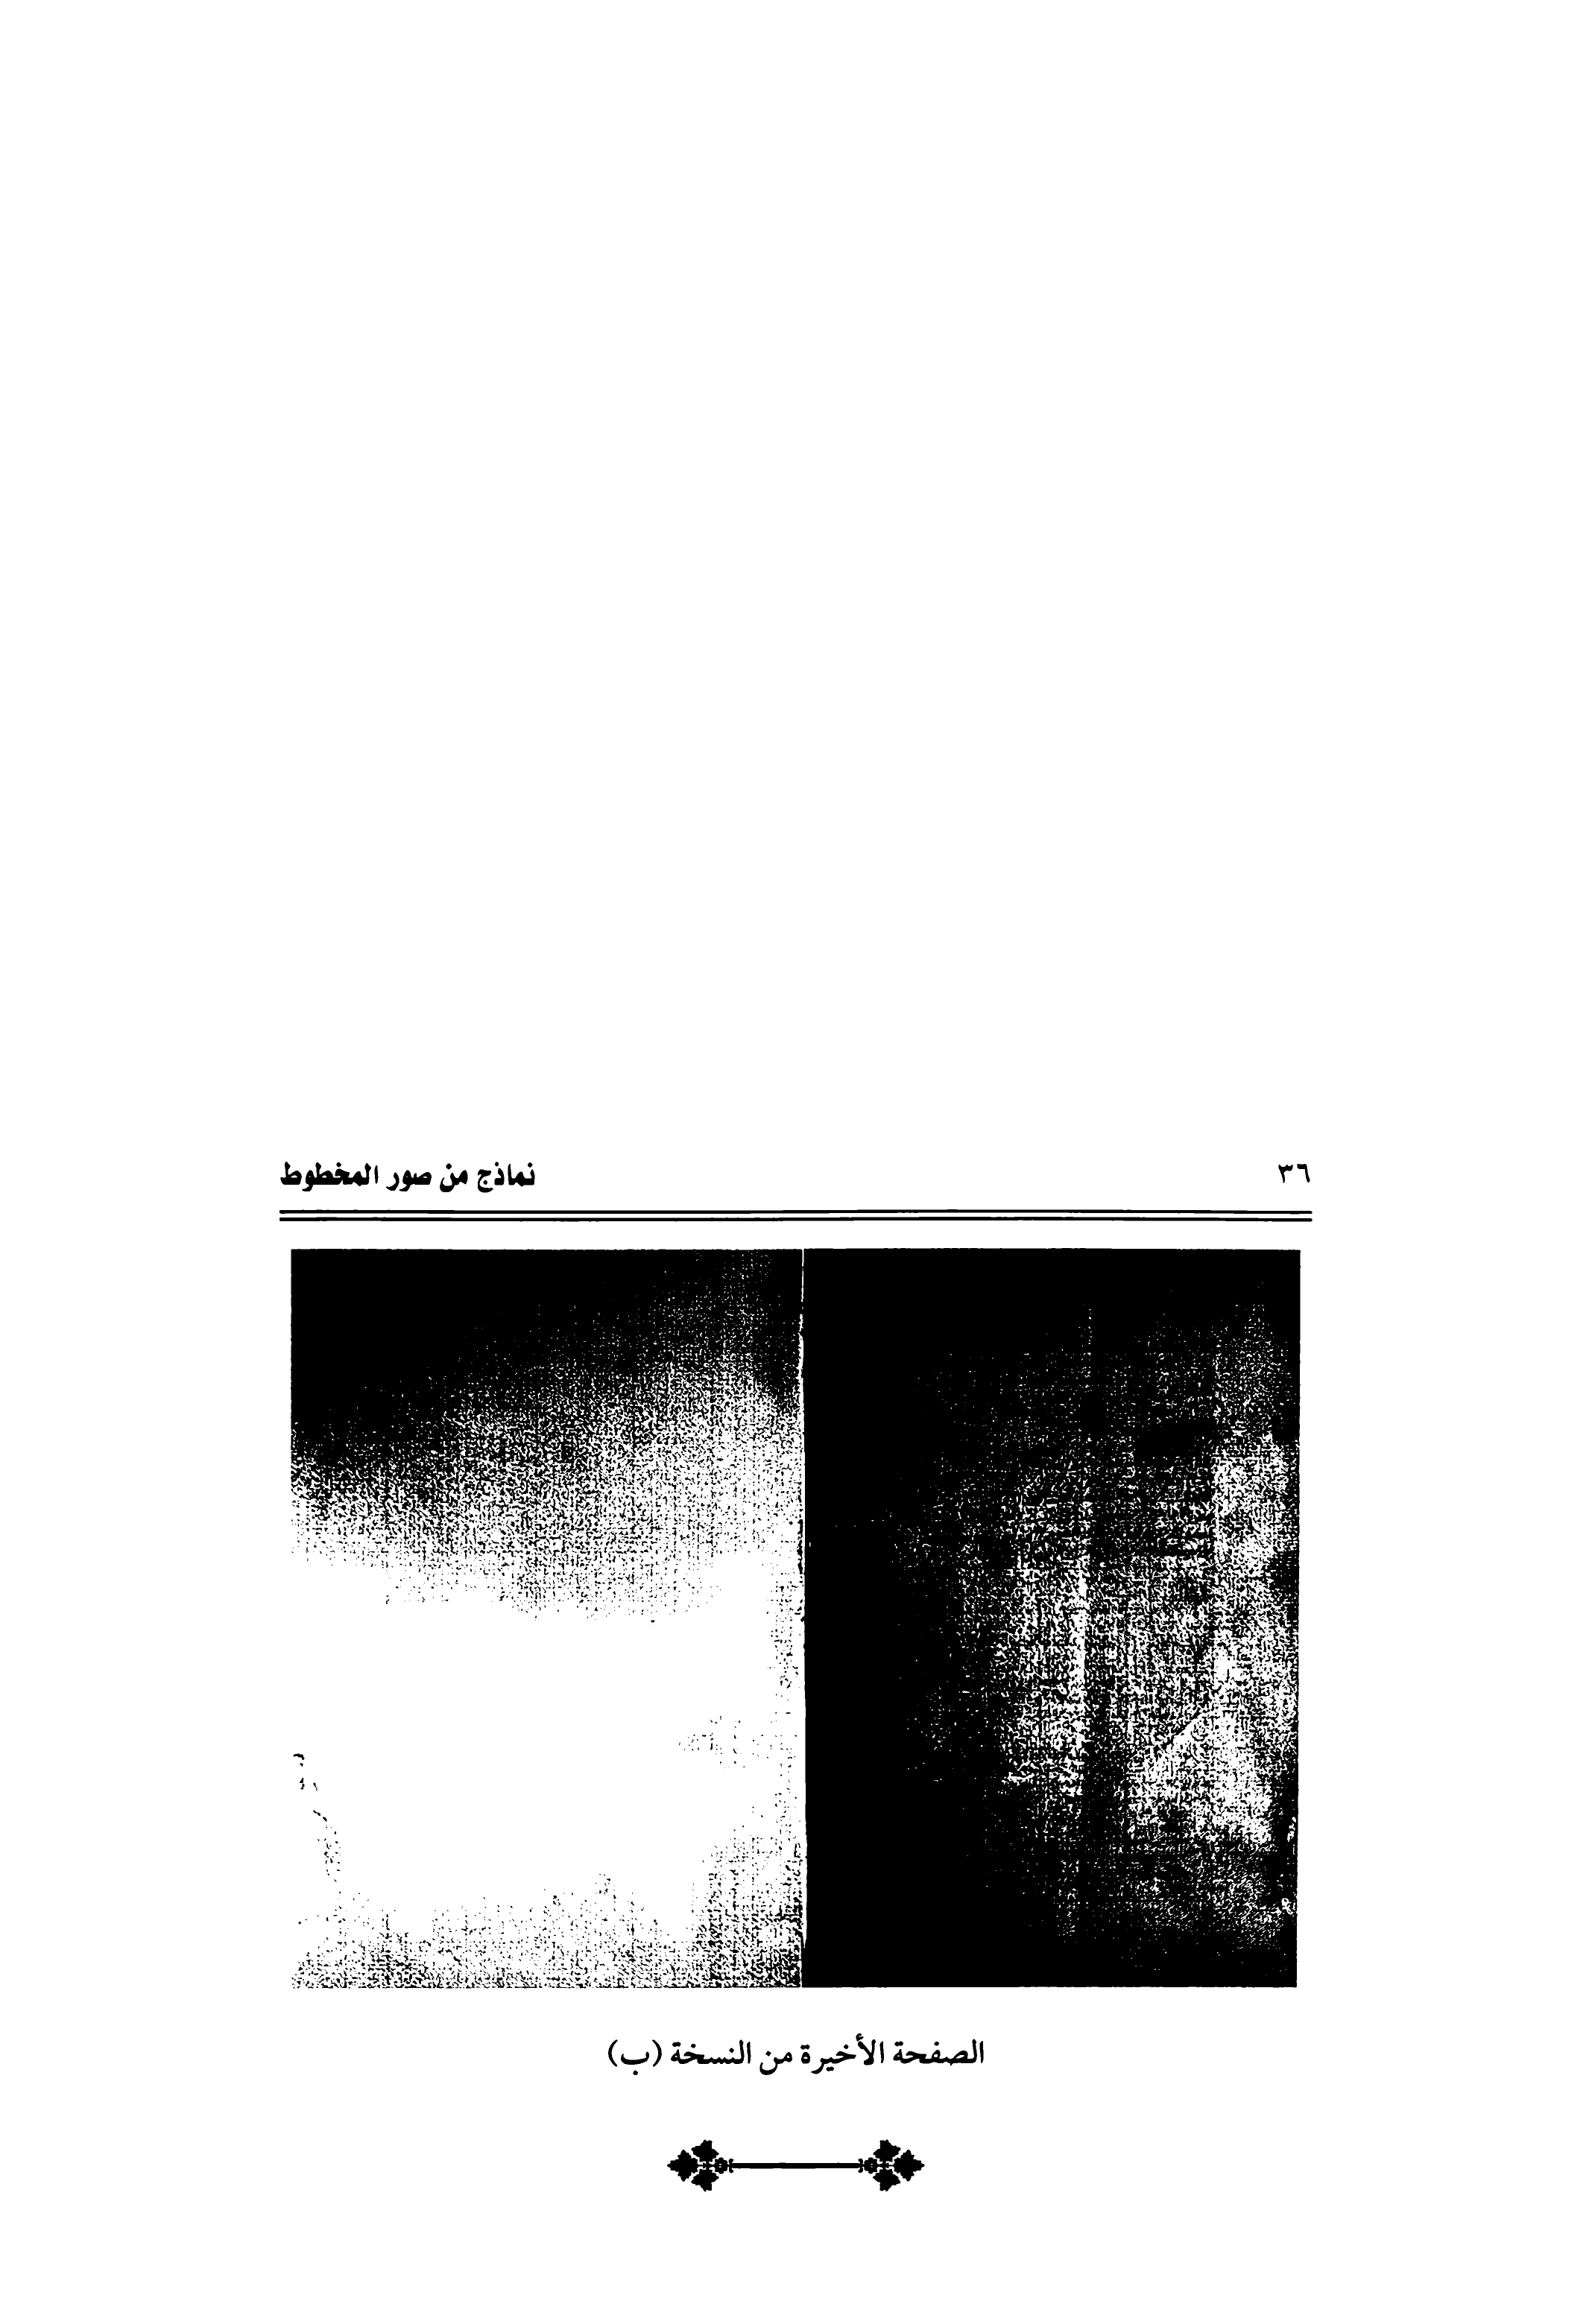 ٣٦
نماذج من صور المخطوط
الصفحة الأخيرة من النسخة (ب)